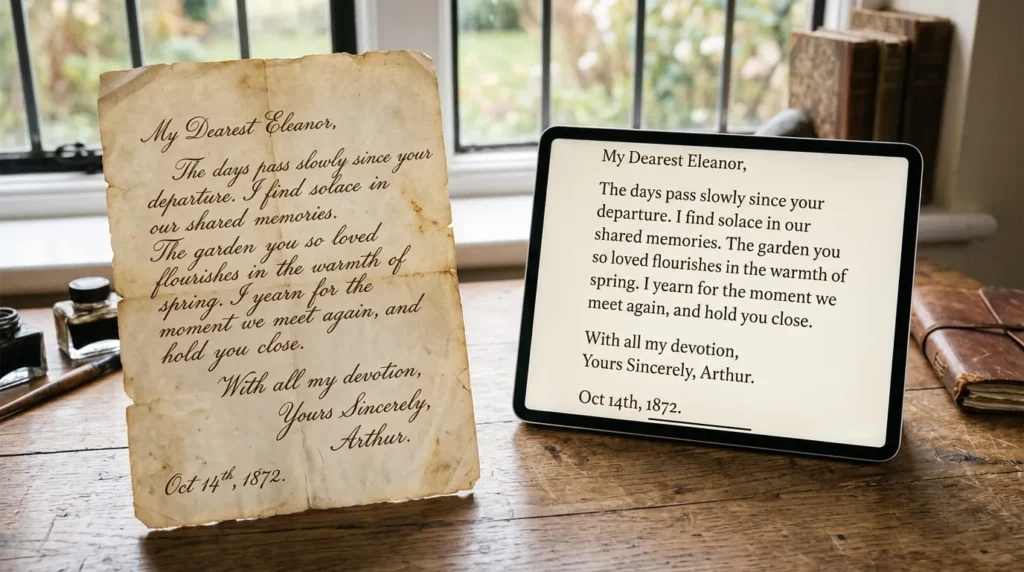 My Dearest Eleanor,
The days pass slowly since your
departure. I find solace in
our shared memories.
The garden you so loved
flourishes in the warmth of
spring. I yearn for the
moment we meet again, and
hold you close.
With all my devotion,
Yours Sincerely,
Arthur.
Oct 14th, 1872.
My Dearest Eleanor,
The days pass slowly since your
departure. I find solace in our
shared memories. The garden you
so loved flourishes in the warmth of
spring. I yearn for the moment we
meet again, and hold you close.
With all my devotion,
Yours Sincerely, Arthur.
Oct 14th, 1872.